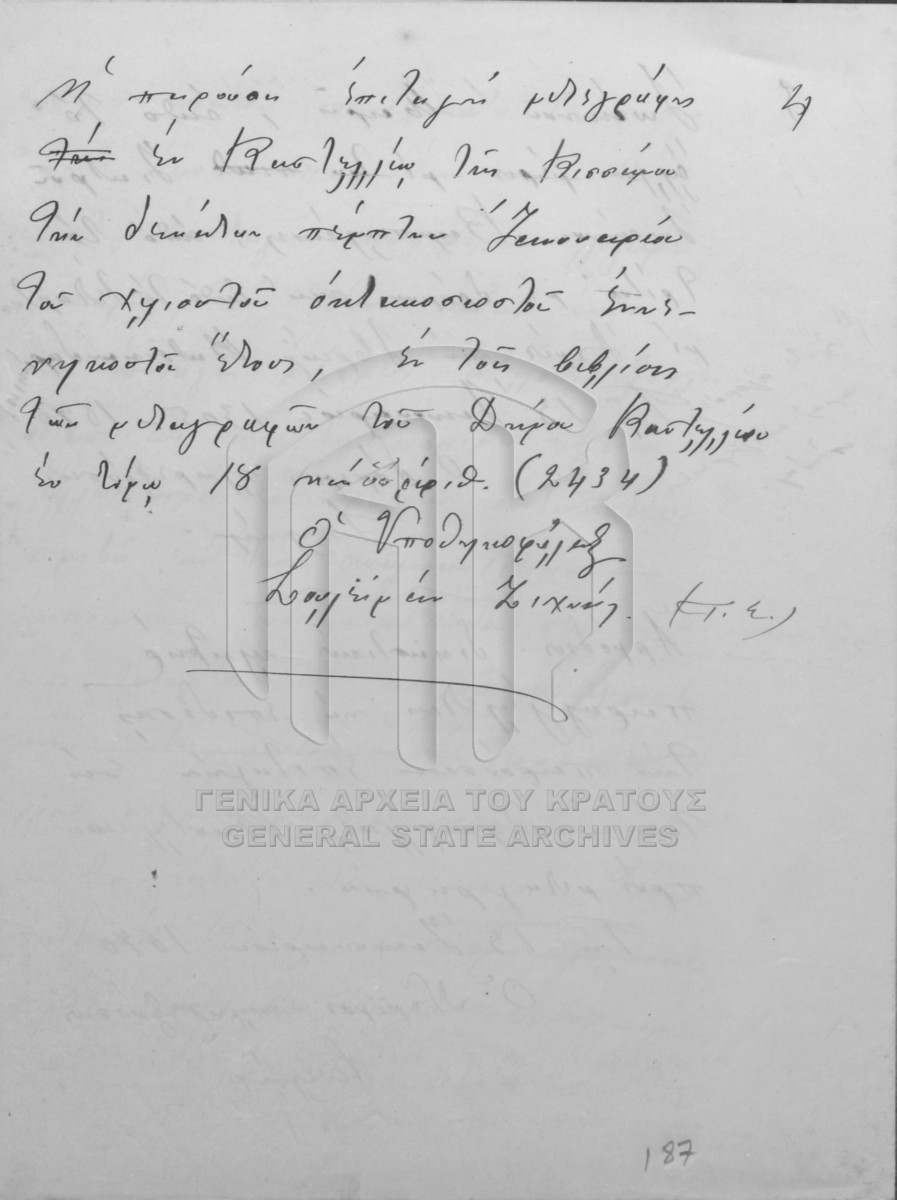 Ἡ παροῦσα ἐπιταγὴ μετεγράφη
~~Τὴν~~ ἐν Καστελλίῳ τῆς Κισσάμου
τὴν δεκάτην πέμπτην Ἰανουαρίου
τοῦ χιλιοστοῦ ὀκτακοσιοστοῦ ἐννε-
νηκοστοῦ ἔτους, ἐν τοῖς βιβλίοις
τῶν μεταγραφῶν τοῦ Δήμου Καστελλίου
ἐν τόμῳ 18 καὶ ὑπ' ἀριθ. (2434)
Ὁ Ὑποθηκοφύλαξ
Σουλεϊμὰν (Τ.Σ.)
ΓΕΝΙΚΑ ΑΡΧΕΙΑ ΤΟΥ ΚΡΑΤΟΥΣ
GENERAL STATE ARCHIVES
187